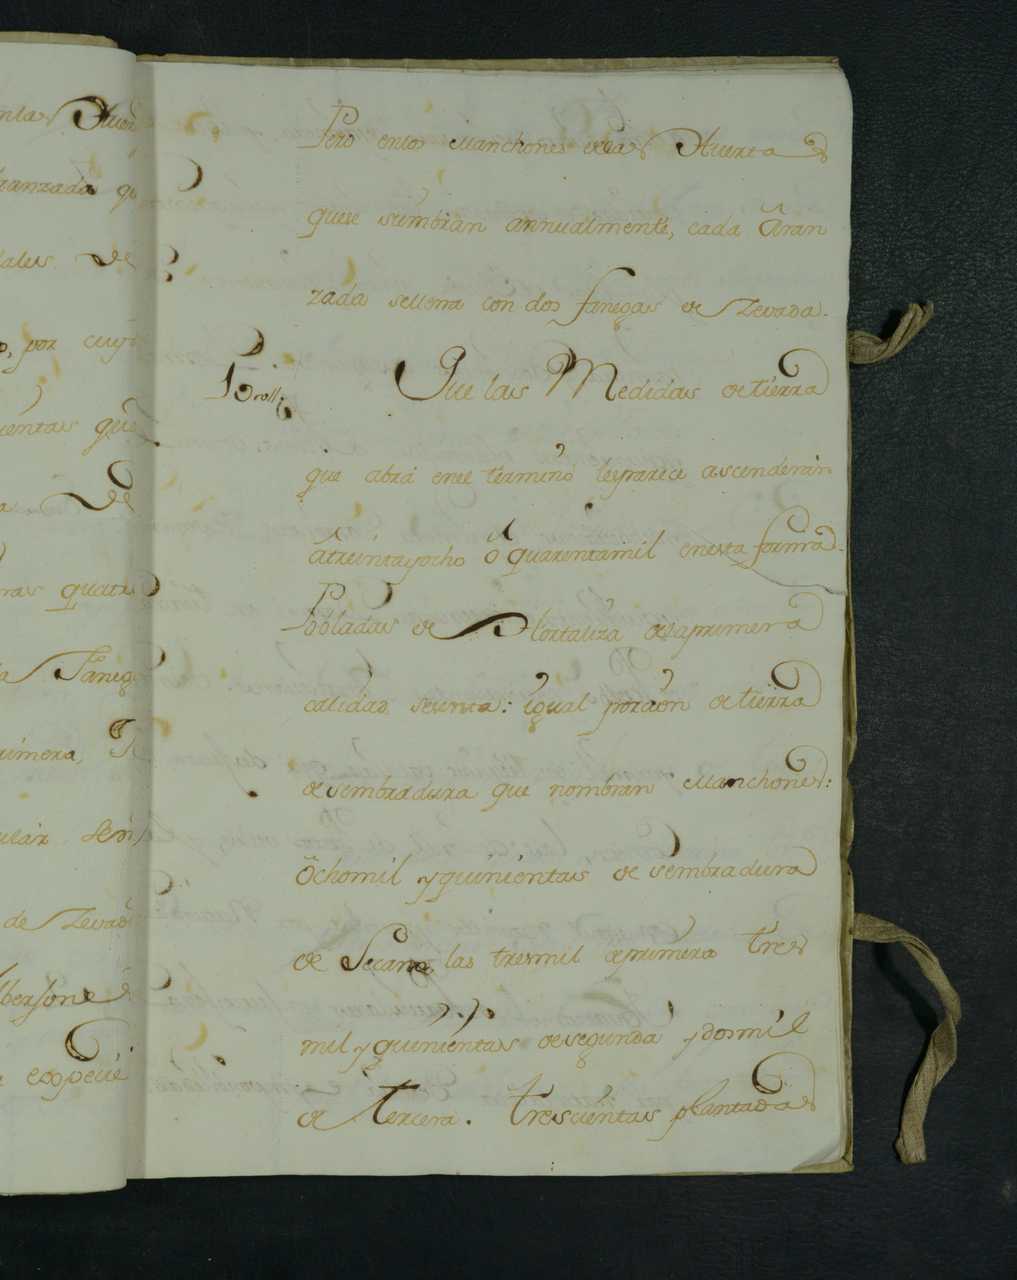 nta
ranzada qe
dales de
o, por cuyo
uentas que
a de
ras quatro
da Faneg
rimera,
cular
de Zevad
a especie
Pero enlos Manchones delas Huertas
quese siembran annualmente, cada Aran
zada sellena con dos fanegas de Zevada.
10
Que las Medidas de tierra
que abrá enel término leparece ascenderán
átreintayocho ó quarentamil enesta forma.
Pobladas de Hortaliza delaprimera
calidad sesenta: ygual porcion de tierra
de sembradura que nombran Manchones:
ôchomil y quinientas de sembradura
de Secano, las tresmil deprimera tres
mil y quinientas desegunda y dosmil
de tercera. trescientas plantadas